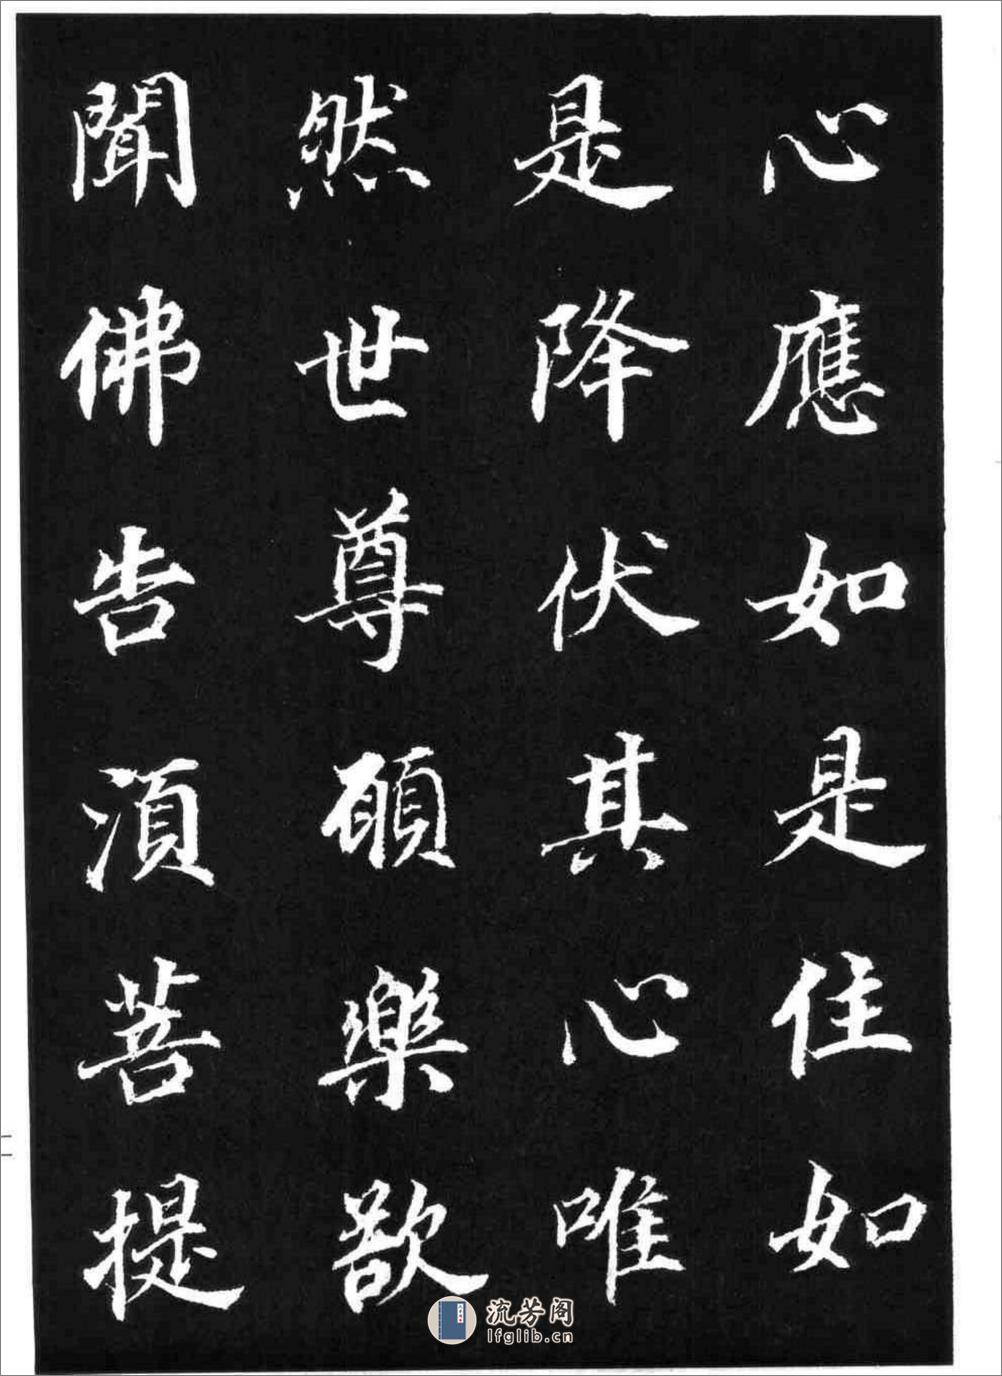 心應如是住如
是降伏其心唯
然世尊願樂欲
聞佛告須菩提
二
流芳阁
lfglib.cn